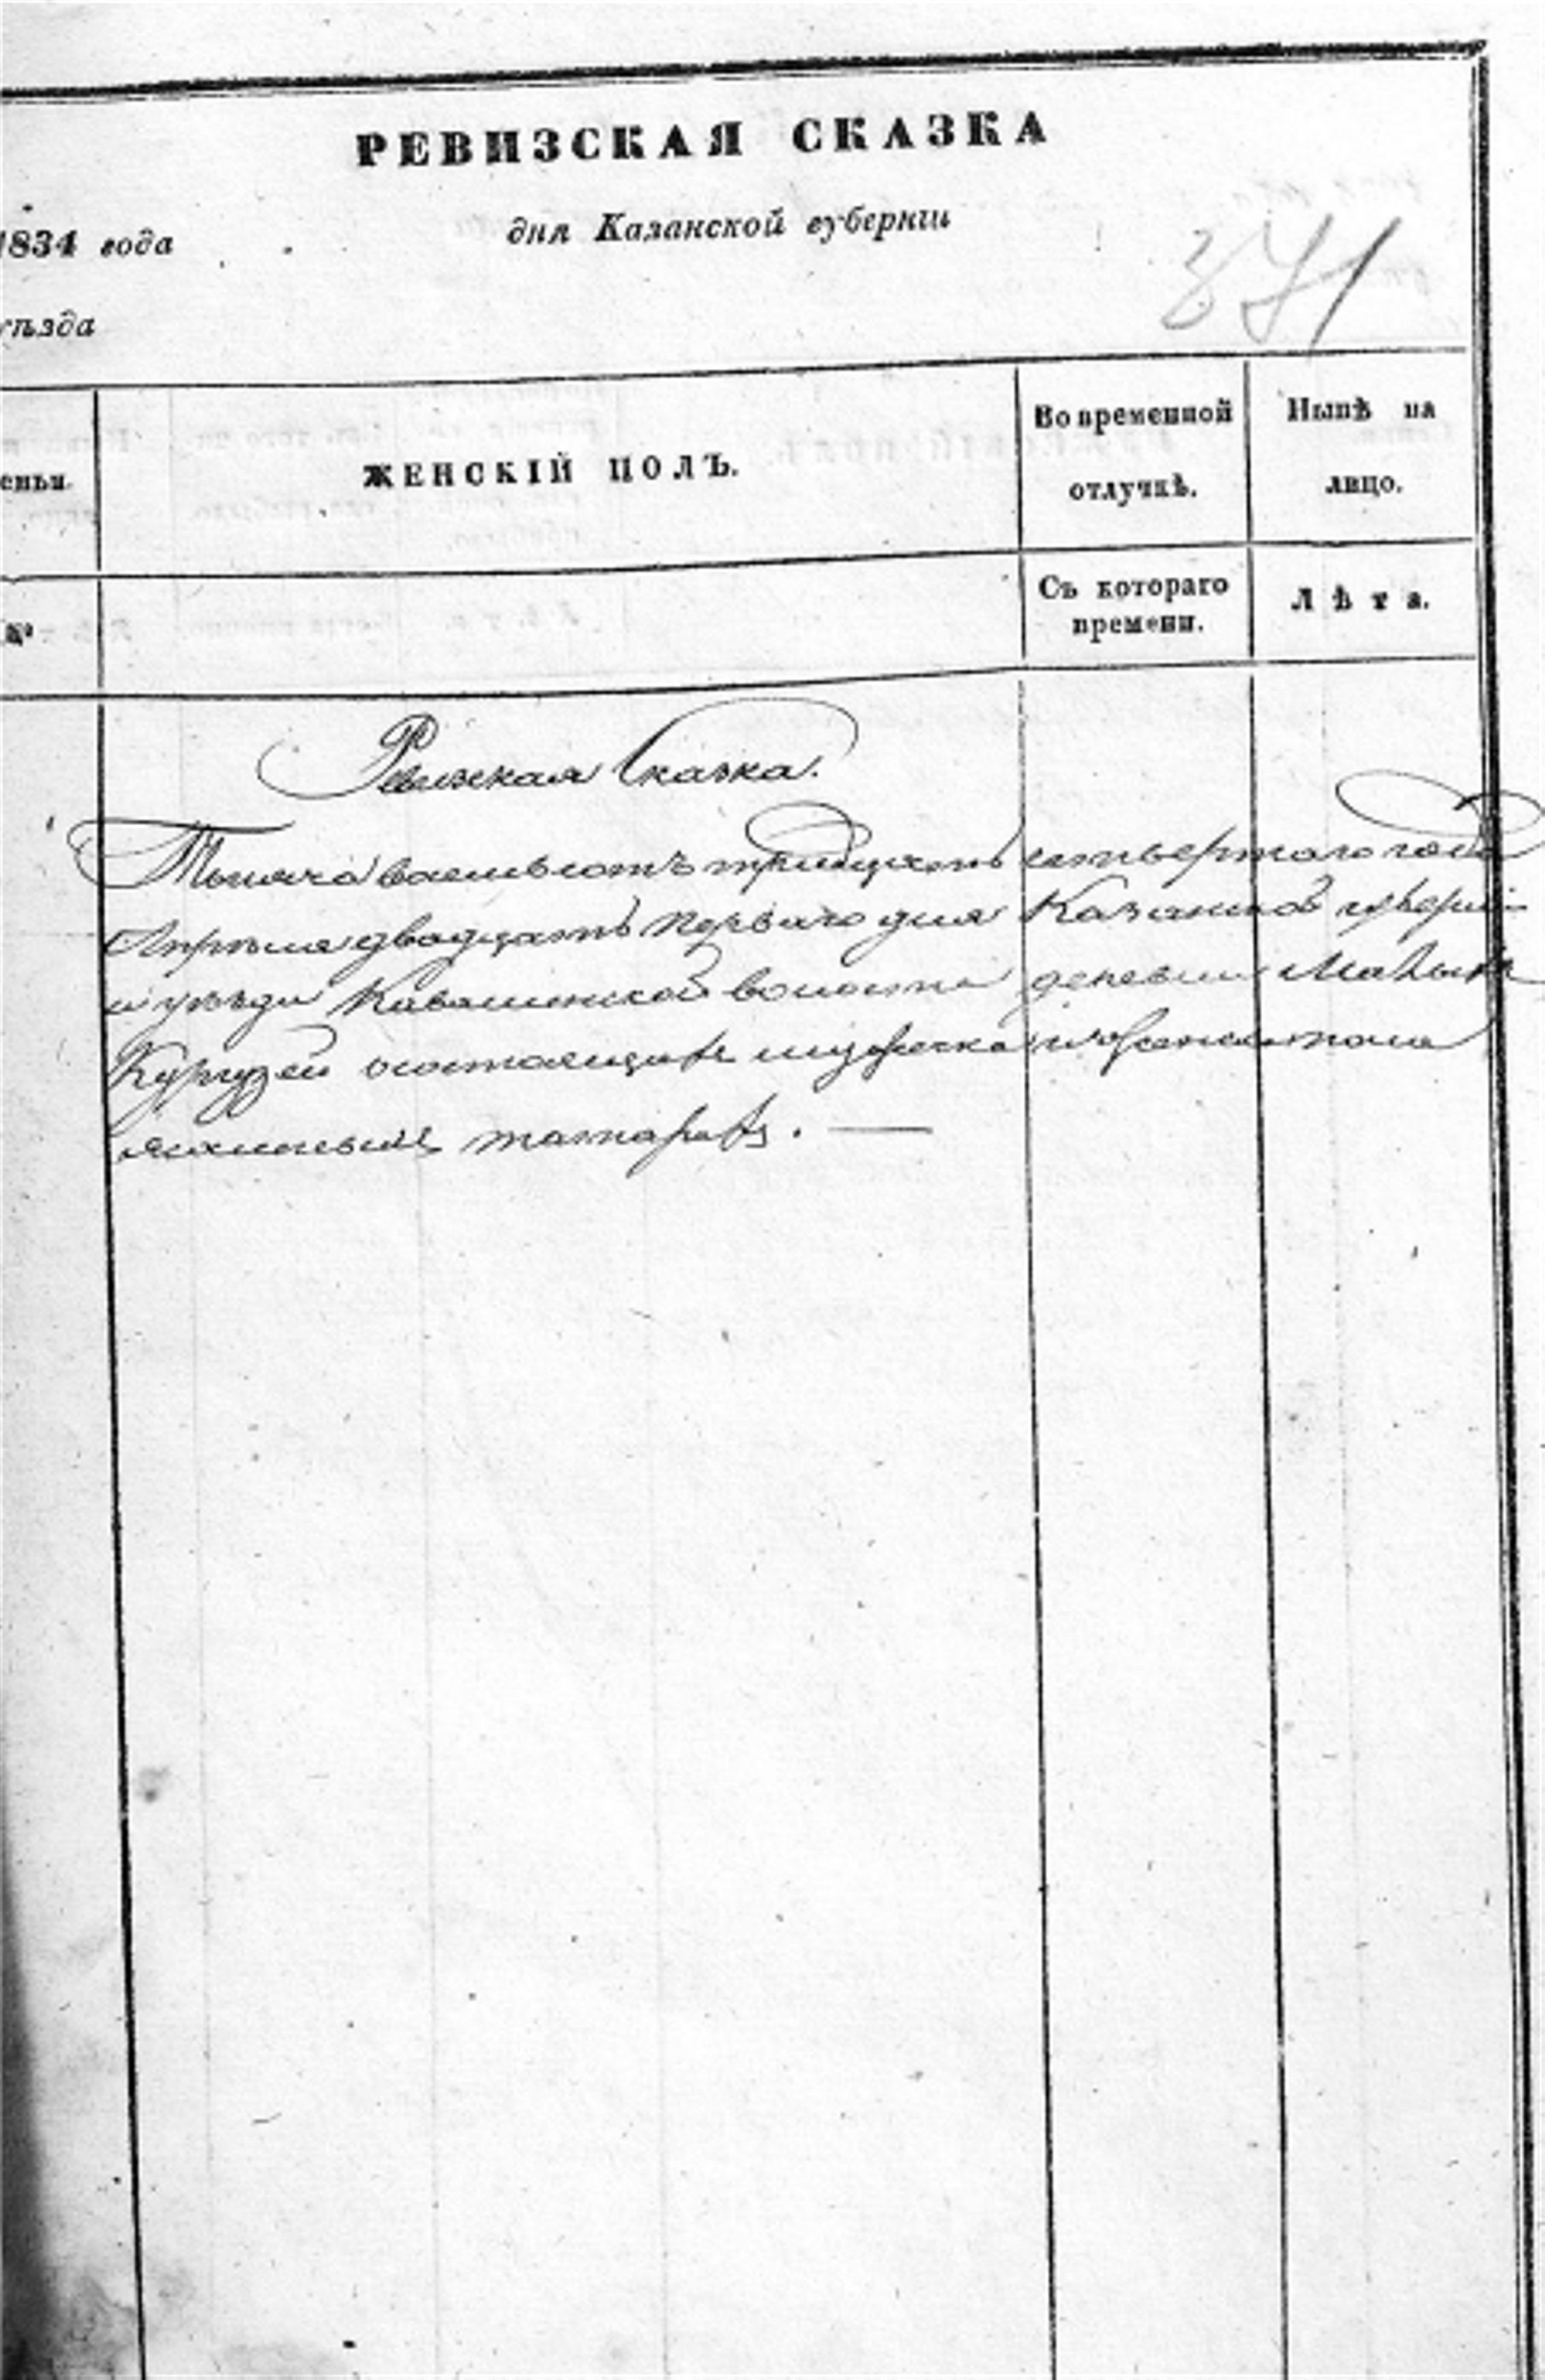 РЕВИЗСКАЯ СКАЗКА
1834 года дня Казанской губерніи
уѣзда
371
еньи. ЖЕНСКІЙ ПОЛЪ. Во временной отлучкѣ. Нынѣ на лицо.
№ Съ котораго времени. Лѣта.
Ревизская Сказка.
Тысяча восемьсотъ тридцать четвертого года
Апреля двадцать первого дня Казанской губерніи
и уезда Кавалинской волости деревни Малыхъ
Кургузей о состоящихъ мужеска и женска пола
ясашныхъ татарахъ. —